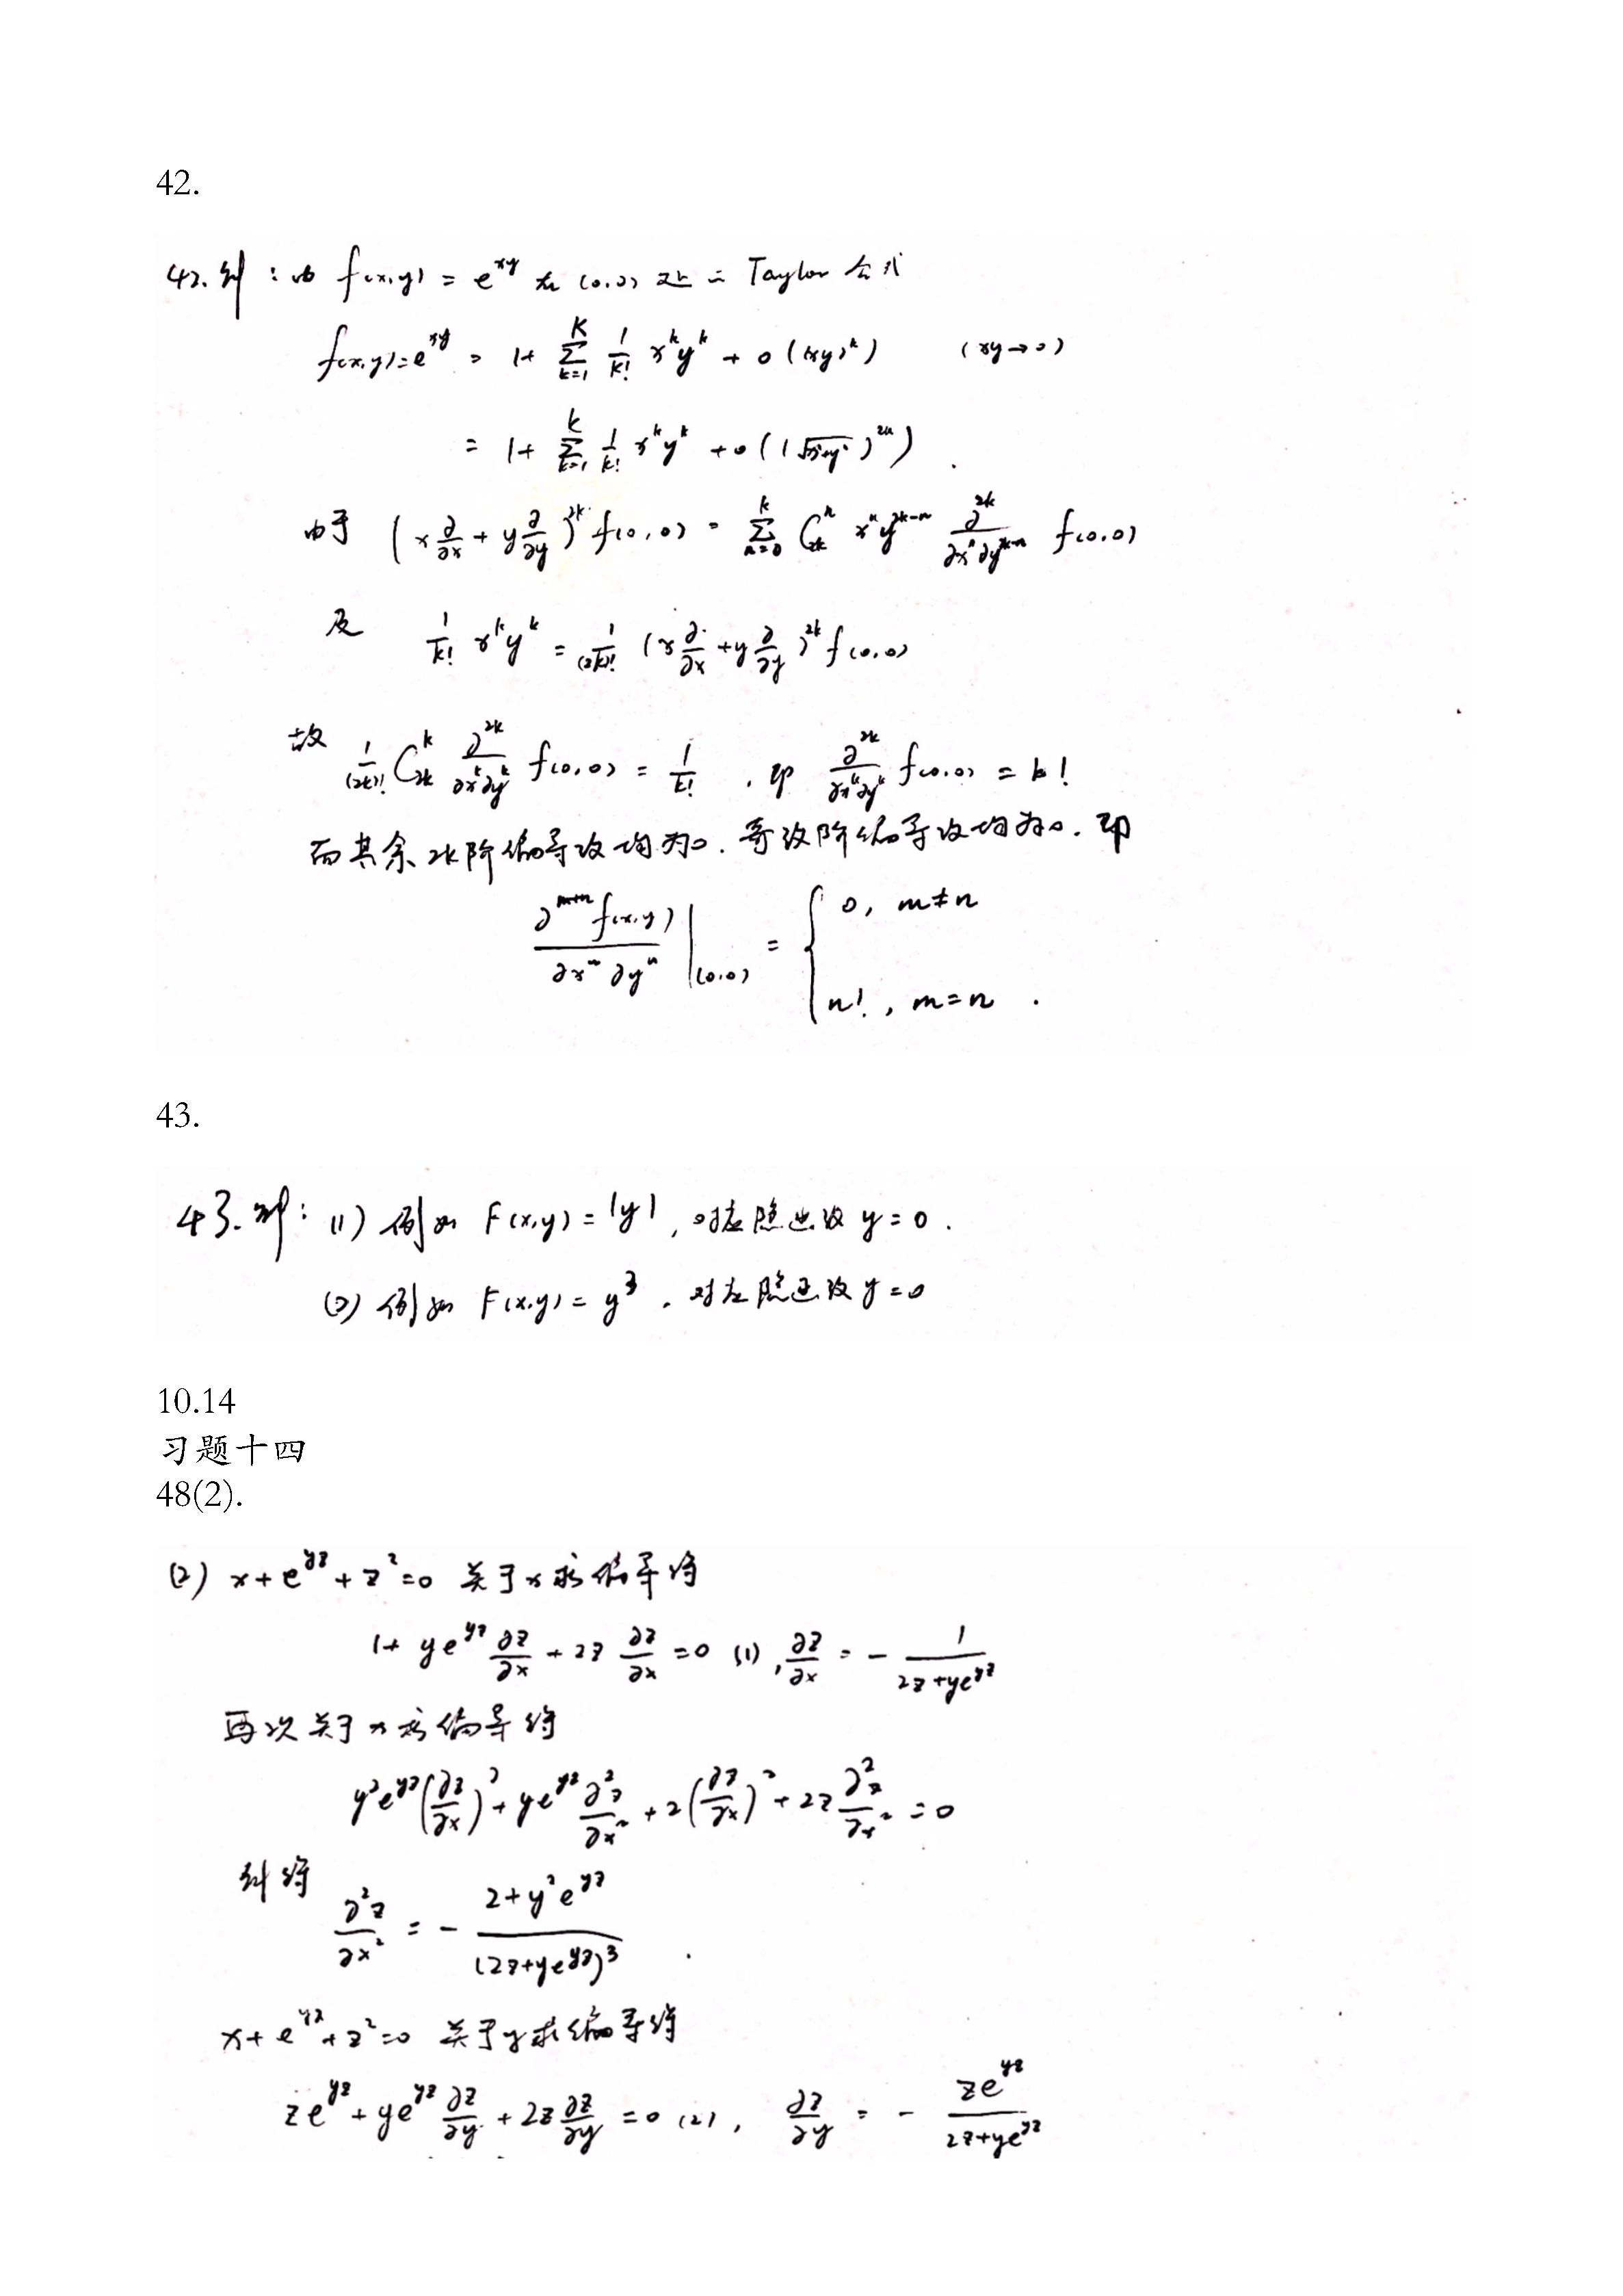 42.
42.解：由 f(x,y) = e^{xy} 在 (0,0) 处 Taylor 公式
f(x,y)=e^{xy} = 1+ \sum_{k=1}^{K} \frac{1}{k!} x^k y^k + o((xy)^k) (xy→0)
= 1+ \sum_{k=1}^{K} \frac{1}{k!} x^k y^k + o((\sqrt{x^2+y^2})^{2k}) .
由于 (x\frac{∂}{∂x} + y\frac{∂}{∂y})^{2k} f(0,0) = \sum_{n=0}^{k} C_{2k}^{n} x^n y^{2k-n} \frac{∂^{2k}}{∂x^n ∂y^{2k-n}} f(0,0)
及 \frac{1}{k!} x^k y^k = \frac{1}{(2k)!} (x\frac{∂}{∂x} + y\frac{∂}{∂y})^{2k} f(0,0)
故 \frac{1}{(2k)!} C_{2k}^{k} \frac{∂^{2k}}{∂x^k ∂y^k} f(0,0) = \frac{1}{k!} , 即 \frac{∂^{2k}}{∂x^k ∂y^k} f(0,0) = k!
而其余 2k阶偏导数均为0. 奇数阶偏导数均为0. 即
\frac{∂^{m+n} f(x,y)}{∂x^m ∂y^n} |_{(0,0)} = { 0, m≠n
n!, m=n .
43.
43.解：(1) 例如 F(x,y) = |y| , 对应隐函数 y=0 .
(2) 例如 F(x,y) = y^3 . 对应隐函数 y=0
10.14
习题十四
48(2).
(2) x+e^{yz}+z^2=0 关于x求偏导得
1+ ye^{yz} \frac{∂z}{∂x} + 2z \frac{∂z}{∂x} = 0 (1) , \frac{∂z}{∂x} = - \frac{1}{2z+ye^{yz}}
再次关于x求偏导得
y^2 e^{yz} (\frac{∂z}{∂x})^2 + ye^{yz} \frac{∂^2 z}{∂x^2} + 2(\frac{∂z}{∂x})^2 + 2z \frac{∂^2 z}{∂x^2} = 0
解得 \frac{∂^2 z}{∂x^2} = - \frac{2+y^2 e^{yz}}{(2z+ye^{yz})^3} .
x+e^{yz}+z^2=0 关于y求偏导得
ze^{yz} + ye^{yz} \frac{∂z}{∂y} + 2z \frac{∂z}{∂y} = 0 (2) , \frac{∂z}{∂y} = - \frac{ze^{yz}}{2z+ye^{yz}}